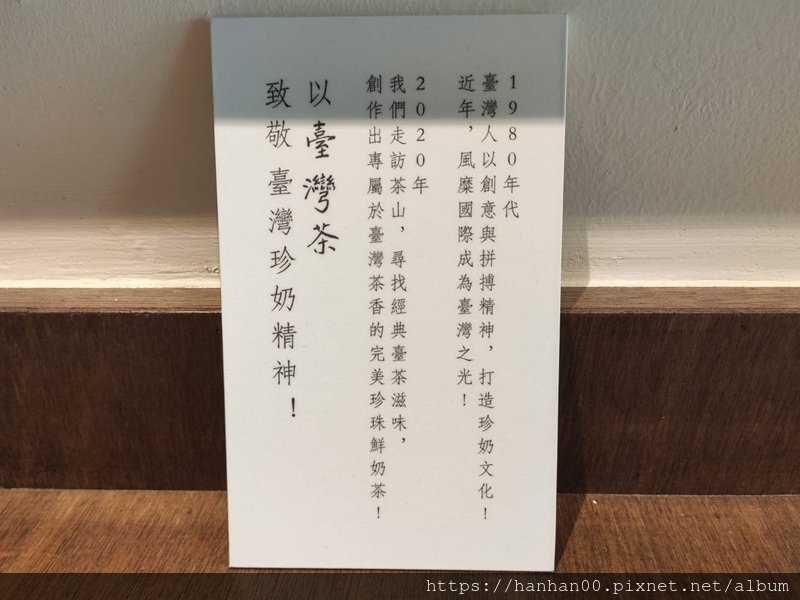 1980年代
臺灣人以創意與拼搏精神，打造珍奶文化！
近年，風糜國際成為臺灣之光！
2020年
我們走訪茶山，尋找經典臺茶滋味，
創作出專屬於臺灣茶香的完美珍珠鮮奶茶！
以臺灣茶
致敬臺灣珍奶精神！
https://hanhan00.pixnet.net/album